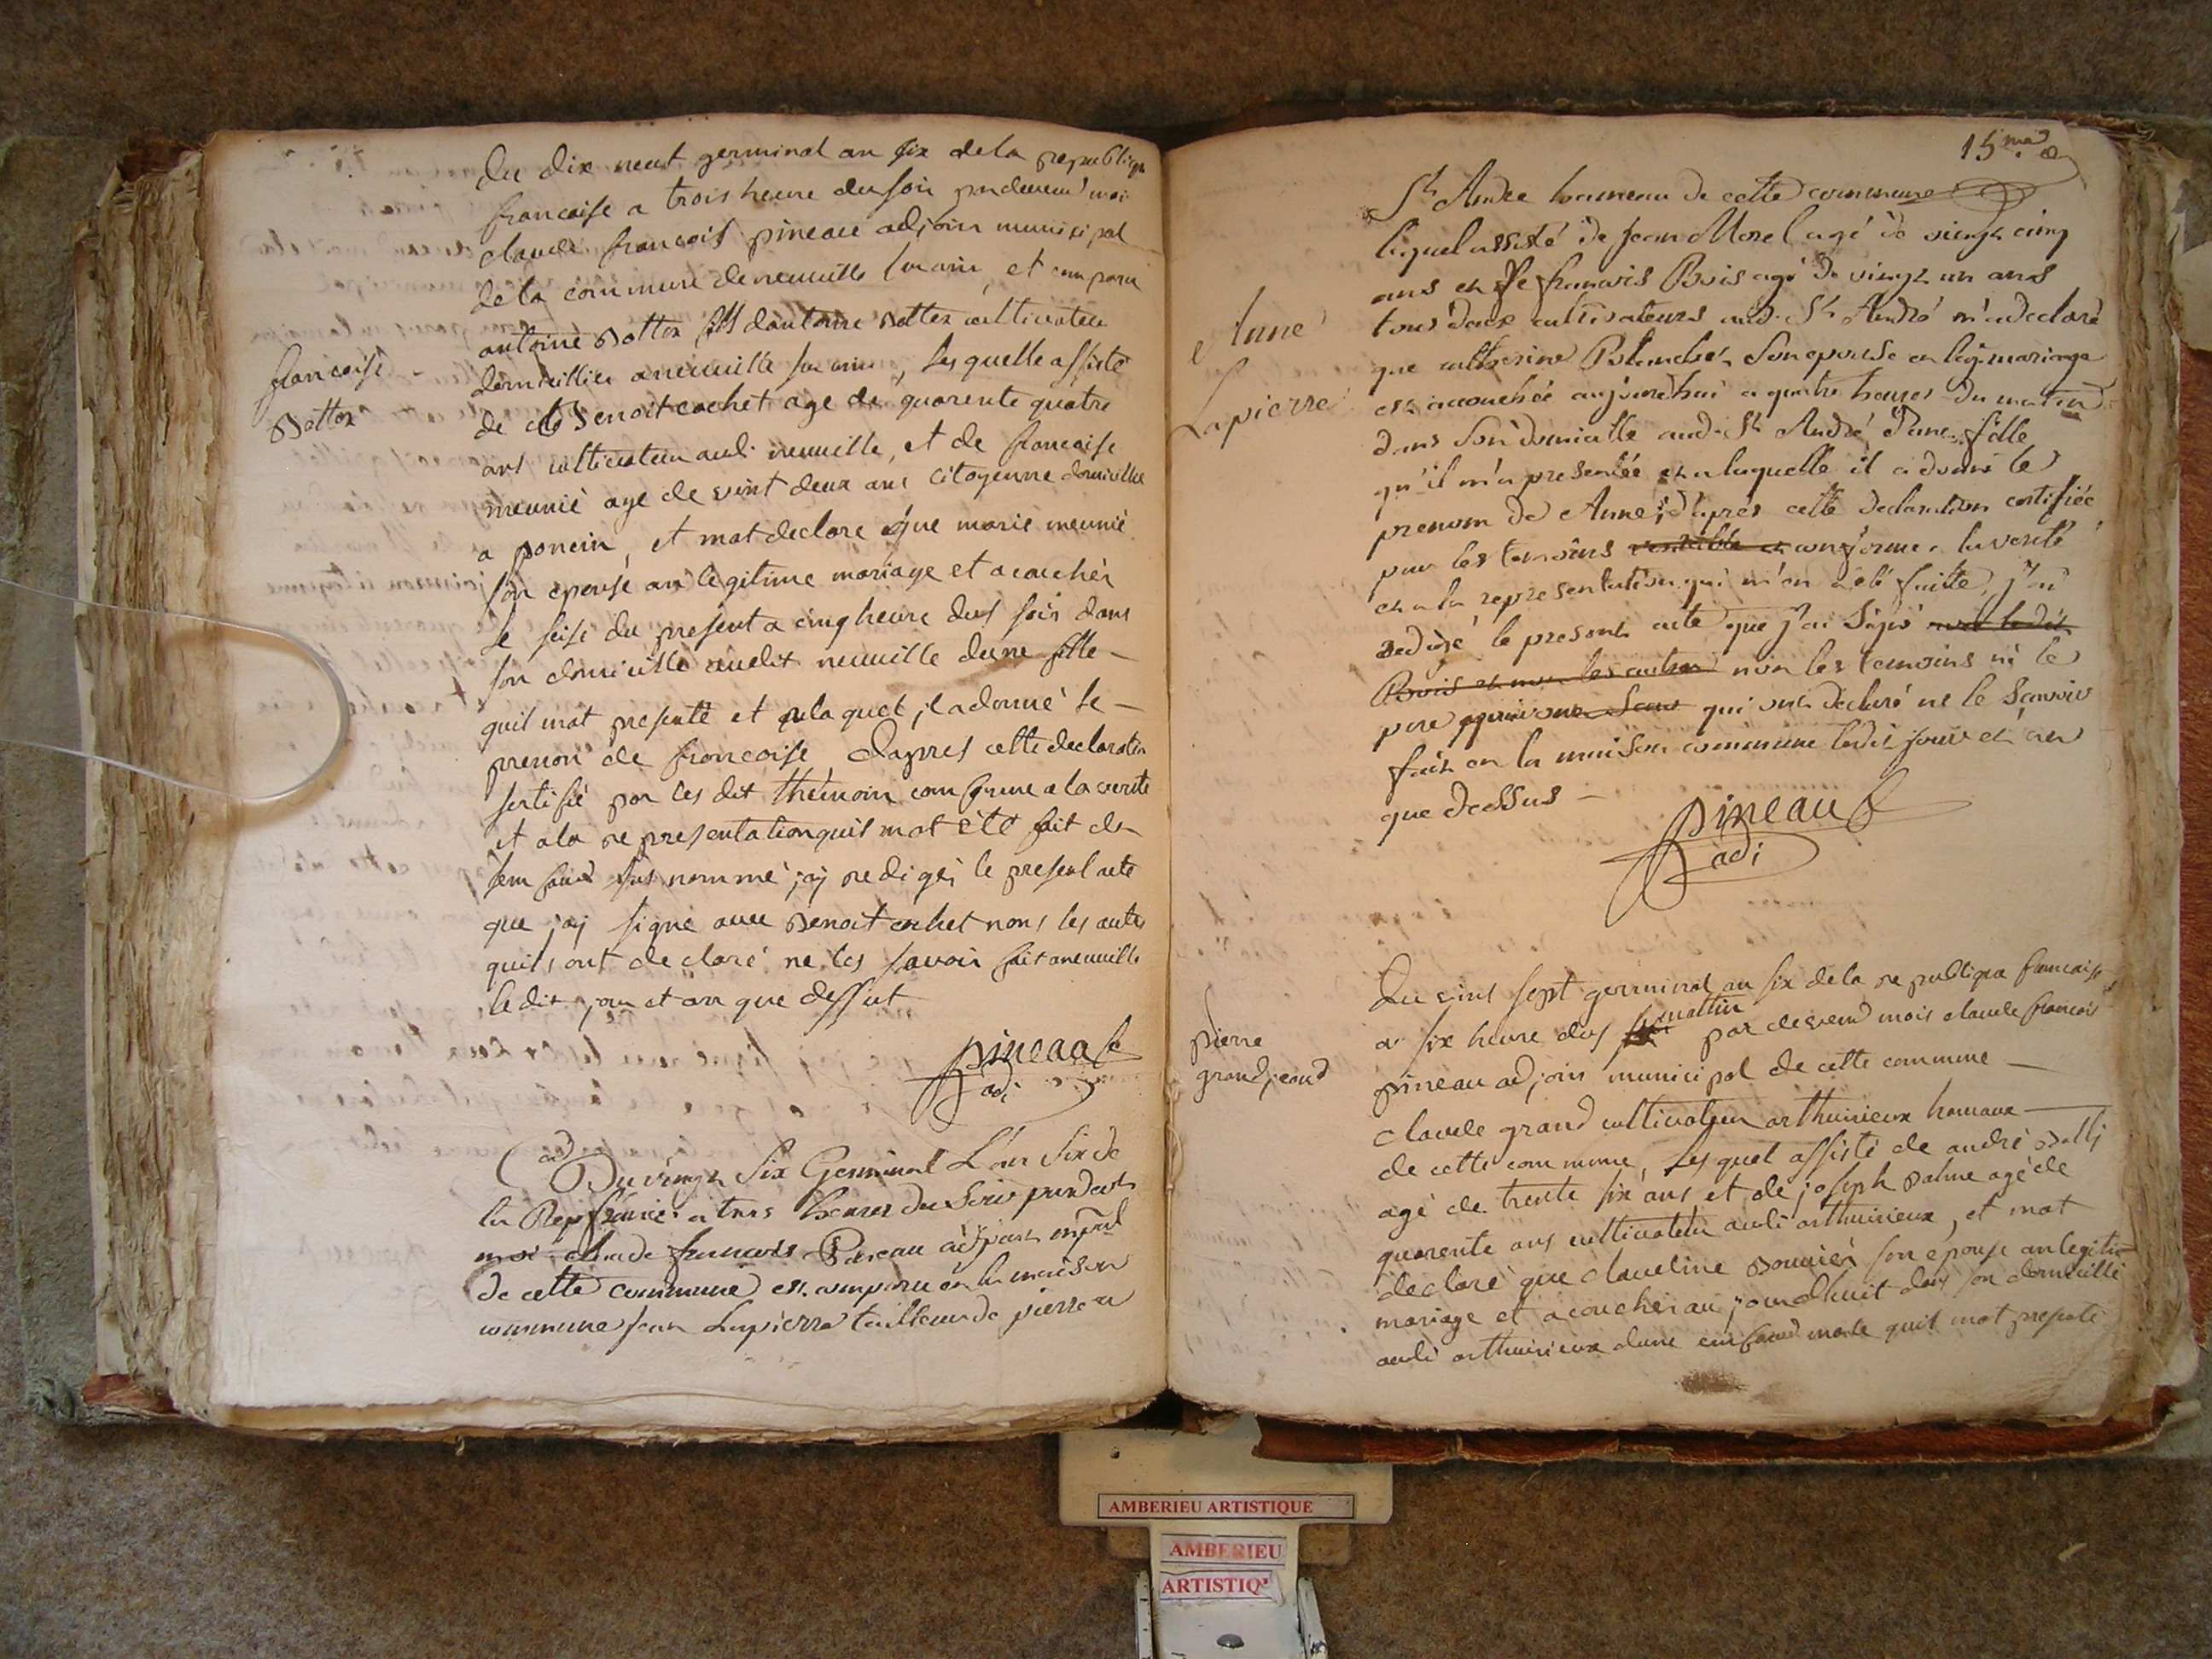 du dix neut germinal an six de la republique
francaise a trois heure du soir pardevend moi
claude francois pineau adjoin municipal
de la commune de neuville sur ain, et comparu
antoine Bottex fils dantoine Bottex cultivateu
domicillier a neuville sur ain, lesquelle assisté
de Benoit cochet age de quarente quatre
ans cultivateur audi neuville, et de francoise
meunié age de vint deux ans citoyenne domicillié
a poncin, et mat declare que marie meunié
son epouse an legitime mariage et acouchér
le seise du present a cinq heure dus soir dans
son domicille audit neuville dune fille
quil mat presenté et alaquel jl a donné le
prenon de francoise Dapres cette declaration
sertifié par les dit thémoin comforme a la verite
et a la representation quil mat été fait de
lenfand sus nommé jaj redigéj le present acte
que jaj signé avec Benoit cochet nons les autes
quils ont declaré ne les savoir fait aneuville
le dit jour et an que dessut
pineau
adj
francoise
Bottex
Du vingt Six Germinal L'an Six de
la Rep. francaise a trois heures du Soir pardevant
moi claude francois Pineau adjoint mpal
de cette commune est comparu en la maison
commune Jean Lapierre tailleur de pierre a
15me
St Andre hameau de cette commune
lequel assisté de Jean Morel agé de vingt cinq
ans et de francois Bois agé de vingt un ans
tous deux cultivateurs aud. St André m'a declaré
que catherine Blanchet Son epouse en leg. mariage
est accouchée aujourdhui a quatre heures du matin
dans Son domicille aud. St André d'une fille
qu'il m'a presentée et a laquelle il a donné le
prenom de Anne; d'après cette declaration certifiée
par les temoins veritable et conforme a la verité
et a la representation qui m'en a été faitte, j'ai
redigé le present acte que j'ai Signé avec ledit
Bois et non les autres non les temoins ni le
pere qui ont declaré ne le Sçavoir
fait en la maison commune ledit jour et an
que dessus
pineau
adj
Anne
Lapierre
Du vint sept germinal an six de la republique francaise
a six heure dus mattin par devend mois claude francois
pineau adjoin municipal de cette commune
claude grand cultivateu arthuirieux hamaux
de cette commune, lesquel assisté de andré Bolli
agé de trente six ans et de joseph Balme agé de
quarente ans cultivateu audi arthuirieux, et mat
declaré que claudine Bouvier son épouse an legitime
mariage et acouchér au jourdhuit dans son domicille
audi arthuirieux dune enfand male quil mat presenté
pierre
grandjeand
AMBERIEU ARTISTIQUE
AMBERIEU
ARTISTIQ'